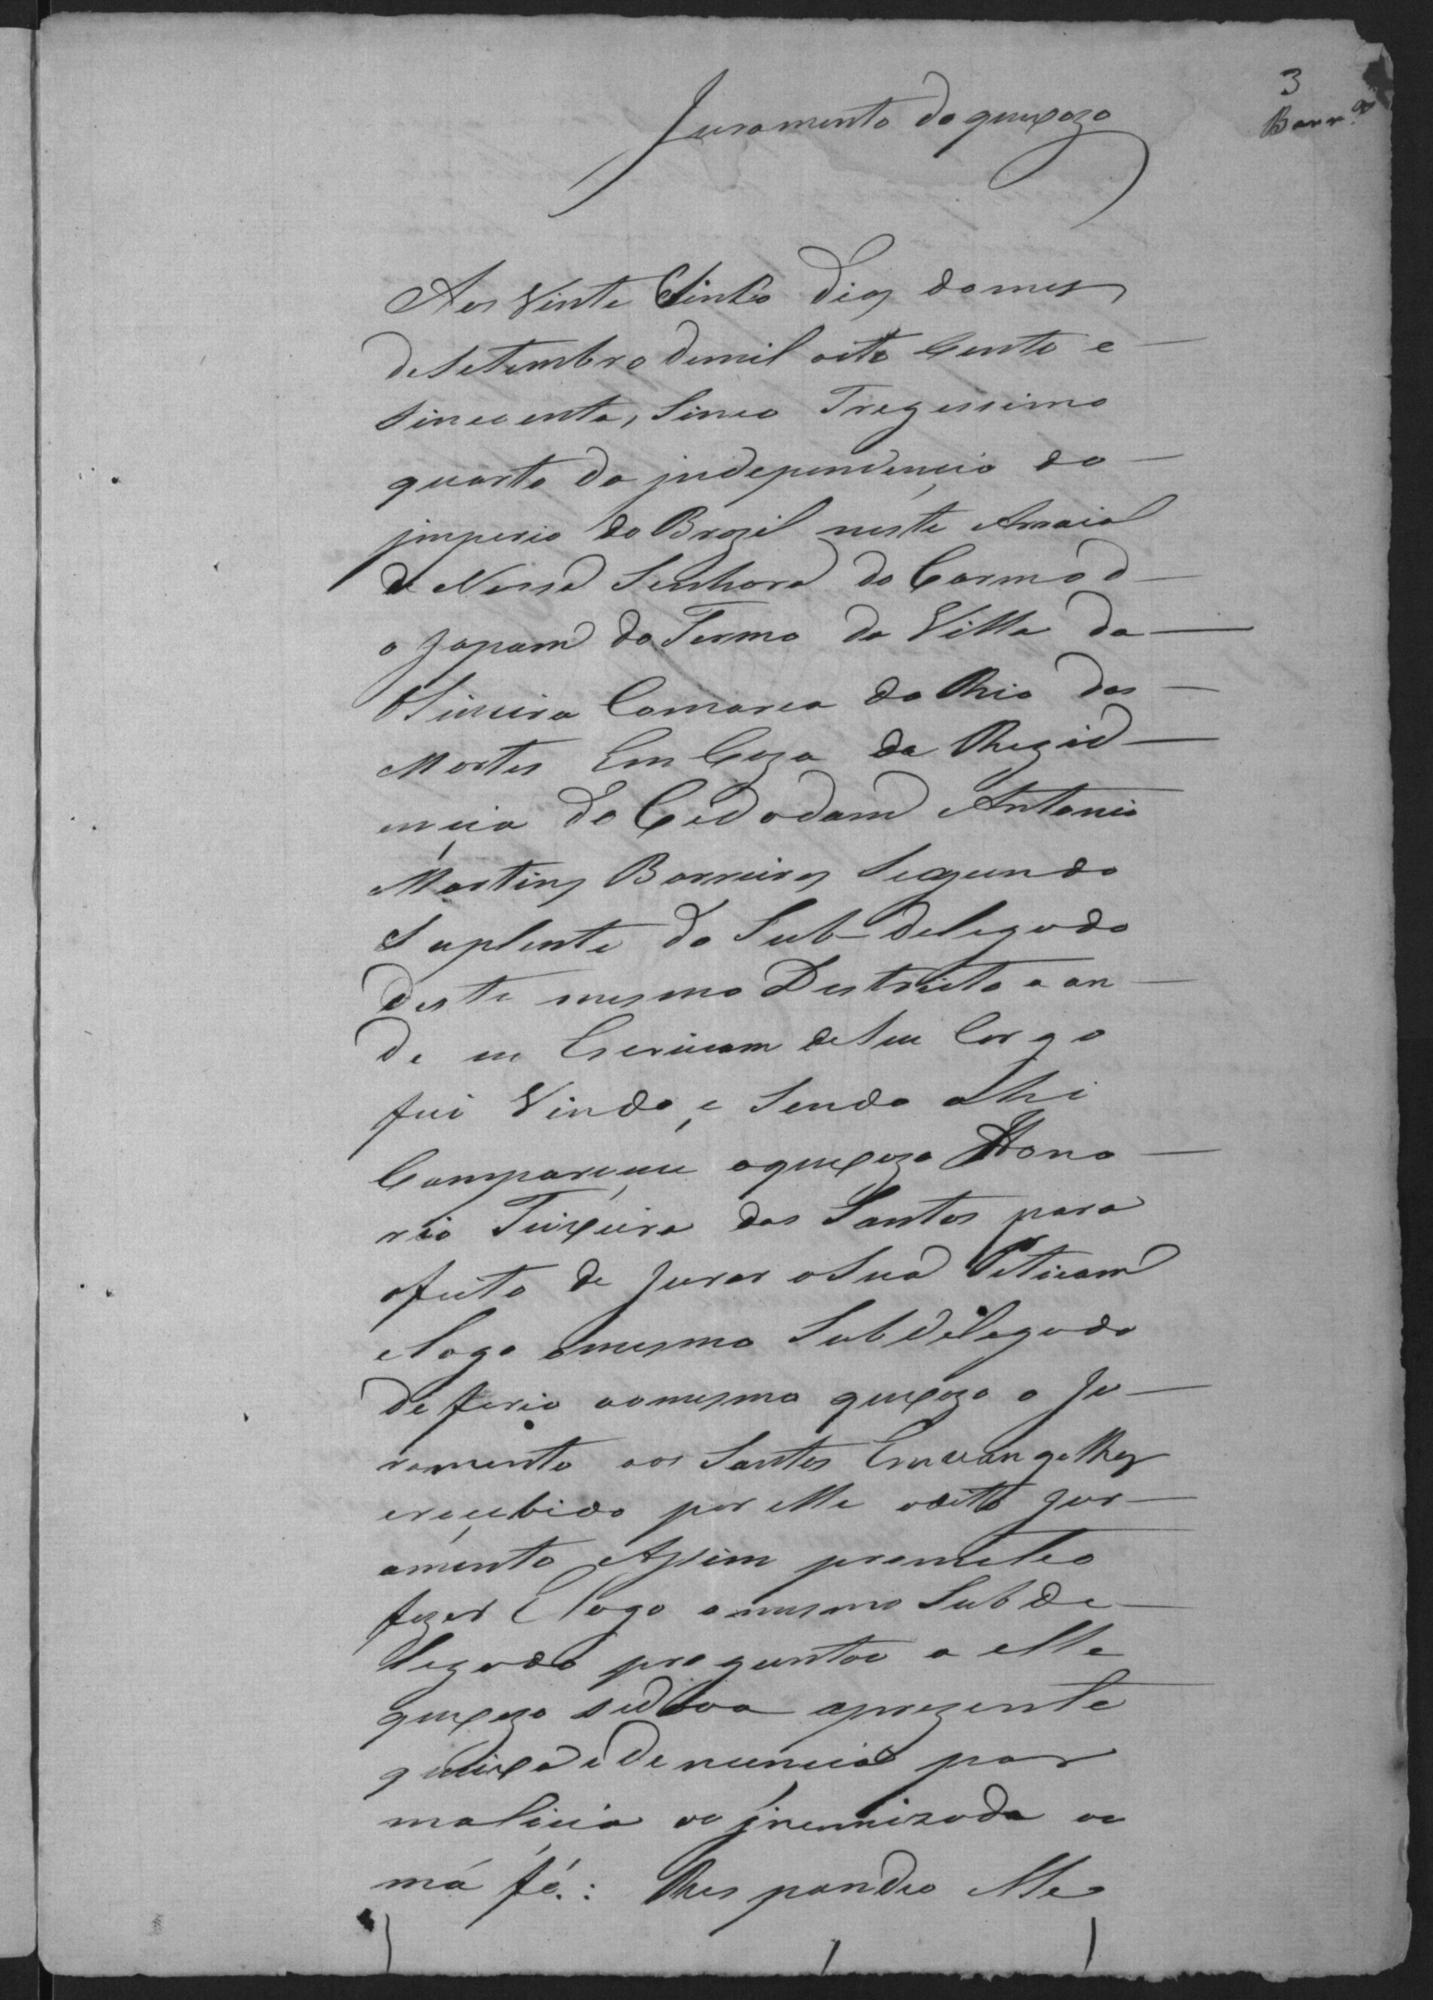 3
Barr.os
Juramento do queixozo
Aos Vinte Sinco dias do mes
de Setembro de mil oito Cento e
Sincoenta, Sinco Tregessimo
quarto da jndependençia do
jmperio do Brazil neste Arraial
de Nossa Senhora do Carmo d
o Japam do Termo da Villa da
Oliveira Comarca do Rio das
Mortes Em Caza da Rezid
ençia do Cidodam Antonio
Martins Barreiros Segundo
Suplente do Sub-delegado
deste mesmo Destricto a on
de eu Escrivam de Seu Cargo
fui Vindo, e Sendo ahi
Compareçeu o queixozo Hono
rio Teixeira dos Santos para
efeito de Jurar a Sua Peticam
e logo o mesmo Subdelegado
deferio ao mesmo queixozo o Ju
ramento aos Santos Emvangelhos
e reçebido por elle o dito Jur
amento Assim prometeo
fazer E logo o mesmo Subde
legado preguntou a elle
queixozo se dava a prezente
queixa e denuncia por
maliçia ou jnemizade ou
má fé.: Respondeo elle